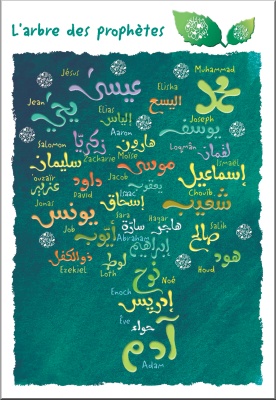 L'arbre des prophètes
Jésus
عيسى
Elisha
اليسع
Muhammad
محمد
Jean
يحيى
Elias
إلياس
Joseph
يوسف
Salomon
سليمان
زكريا
Zacharie
Aaron
هارون
Loqman
لقمان
Moïse
موسى
Ismaël
إسماعيل
'ouzaïr
عزير
داود
David
Jacob
يعقوب
Isaac
إسحاق
Chouïb
شعيب
Jonas
يونس
Sara
سارة
Hagar
هاجر
Salih
صالح
Job
أيوب
Abraham
إبراهيم
ذو الكفل
Ezekiel
لوط
Loth
هود
Houd
نوح
Noé
Enoch
إدريس
Ève
حواء
آدم
Adam